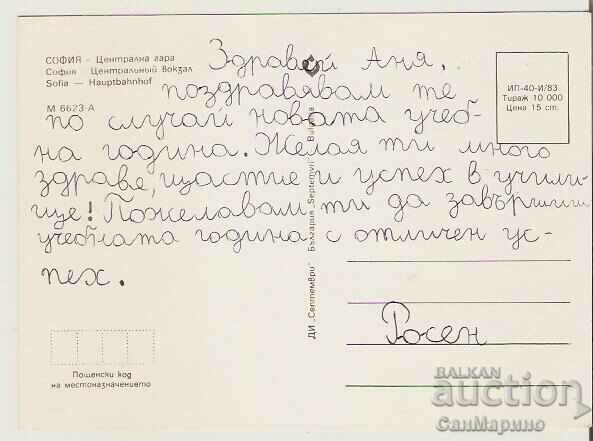 СОФИЯ - Централна гара
София Центральный вокзал
Sofia — Hauptbahnhof
М 6623-А
ИП-40-И/83
Тираж 10 000
Цена 15 ст.
Здравей Аня,
поздравявам те
по случай новата учеб-
на година. Желая ти много
здраве, щастие и успех в учили-
ще! Пожелавам ти да завършиш
учебната година с отличен ус-
пех.
Росен
ДИ „Септември" България "Septemvri" Bulgaria
Пощенски код
на местоназначението
BALKAN
auction
СанМарино